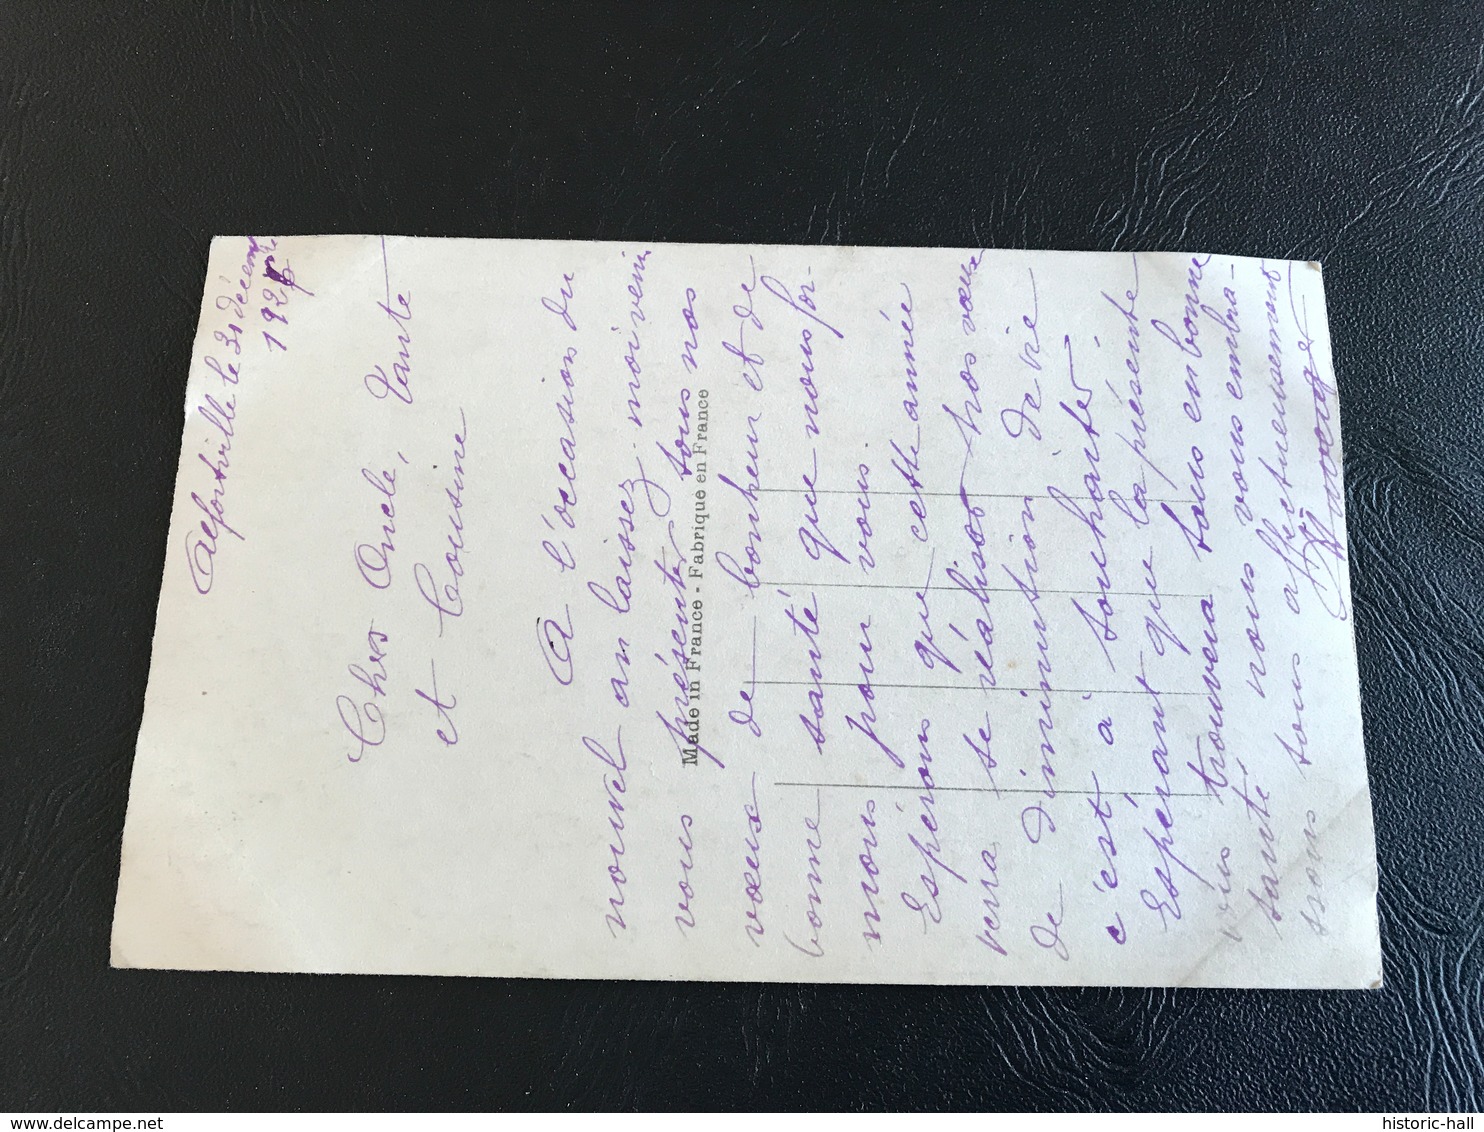 Alfortville le 31 décembre
192
Chers Oncle, Tante
et Cousine
A l'occasion du
nouvel an laissez-moi venir
vous présenter tous nos
Made in France - Fabriqué en France
vœux de bonheur et de
bonne santé que nous for-
mons pour vous.
Espérons que cette année
verra se réaliser nos vœux
de diminution de vie
c'est à souhaiter
Espérant que la présente
vous trouvera tous en bonne
santé nous vous embra-
ssons tous affectueusement
delcampe.net
historic-hall